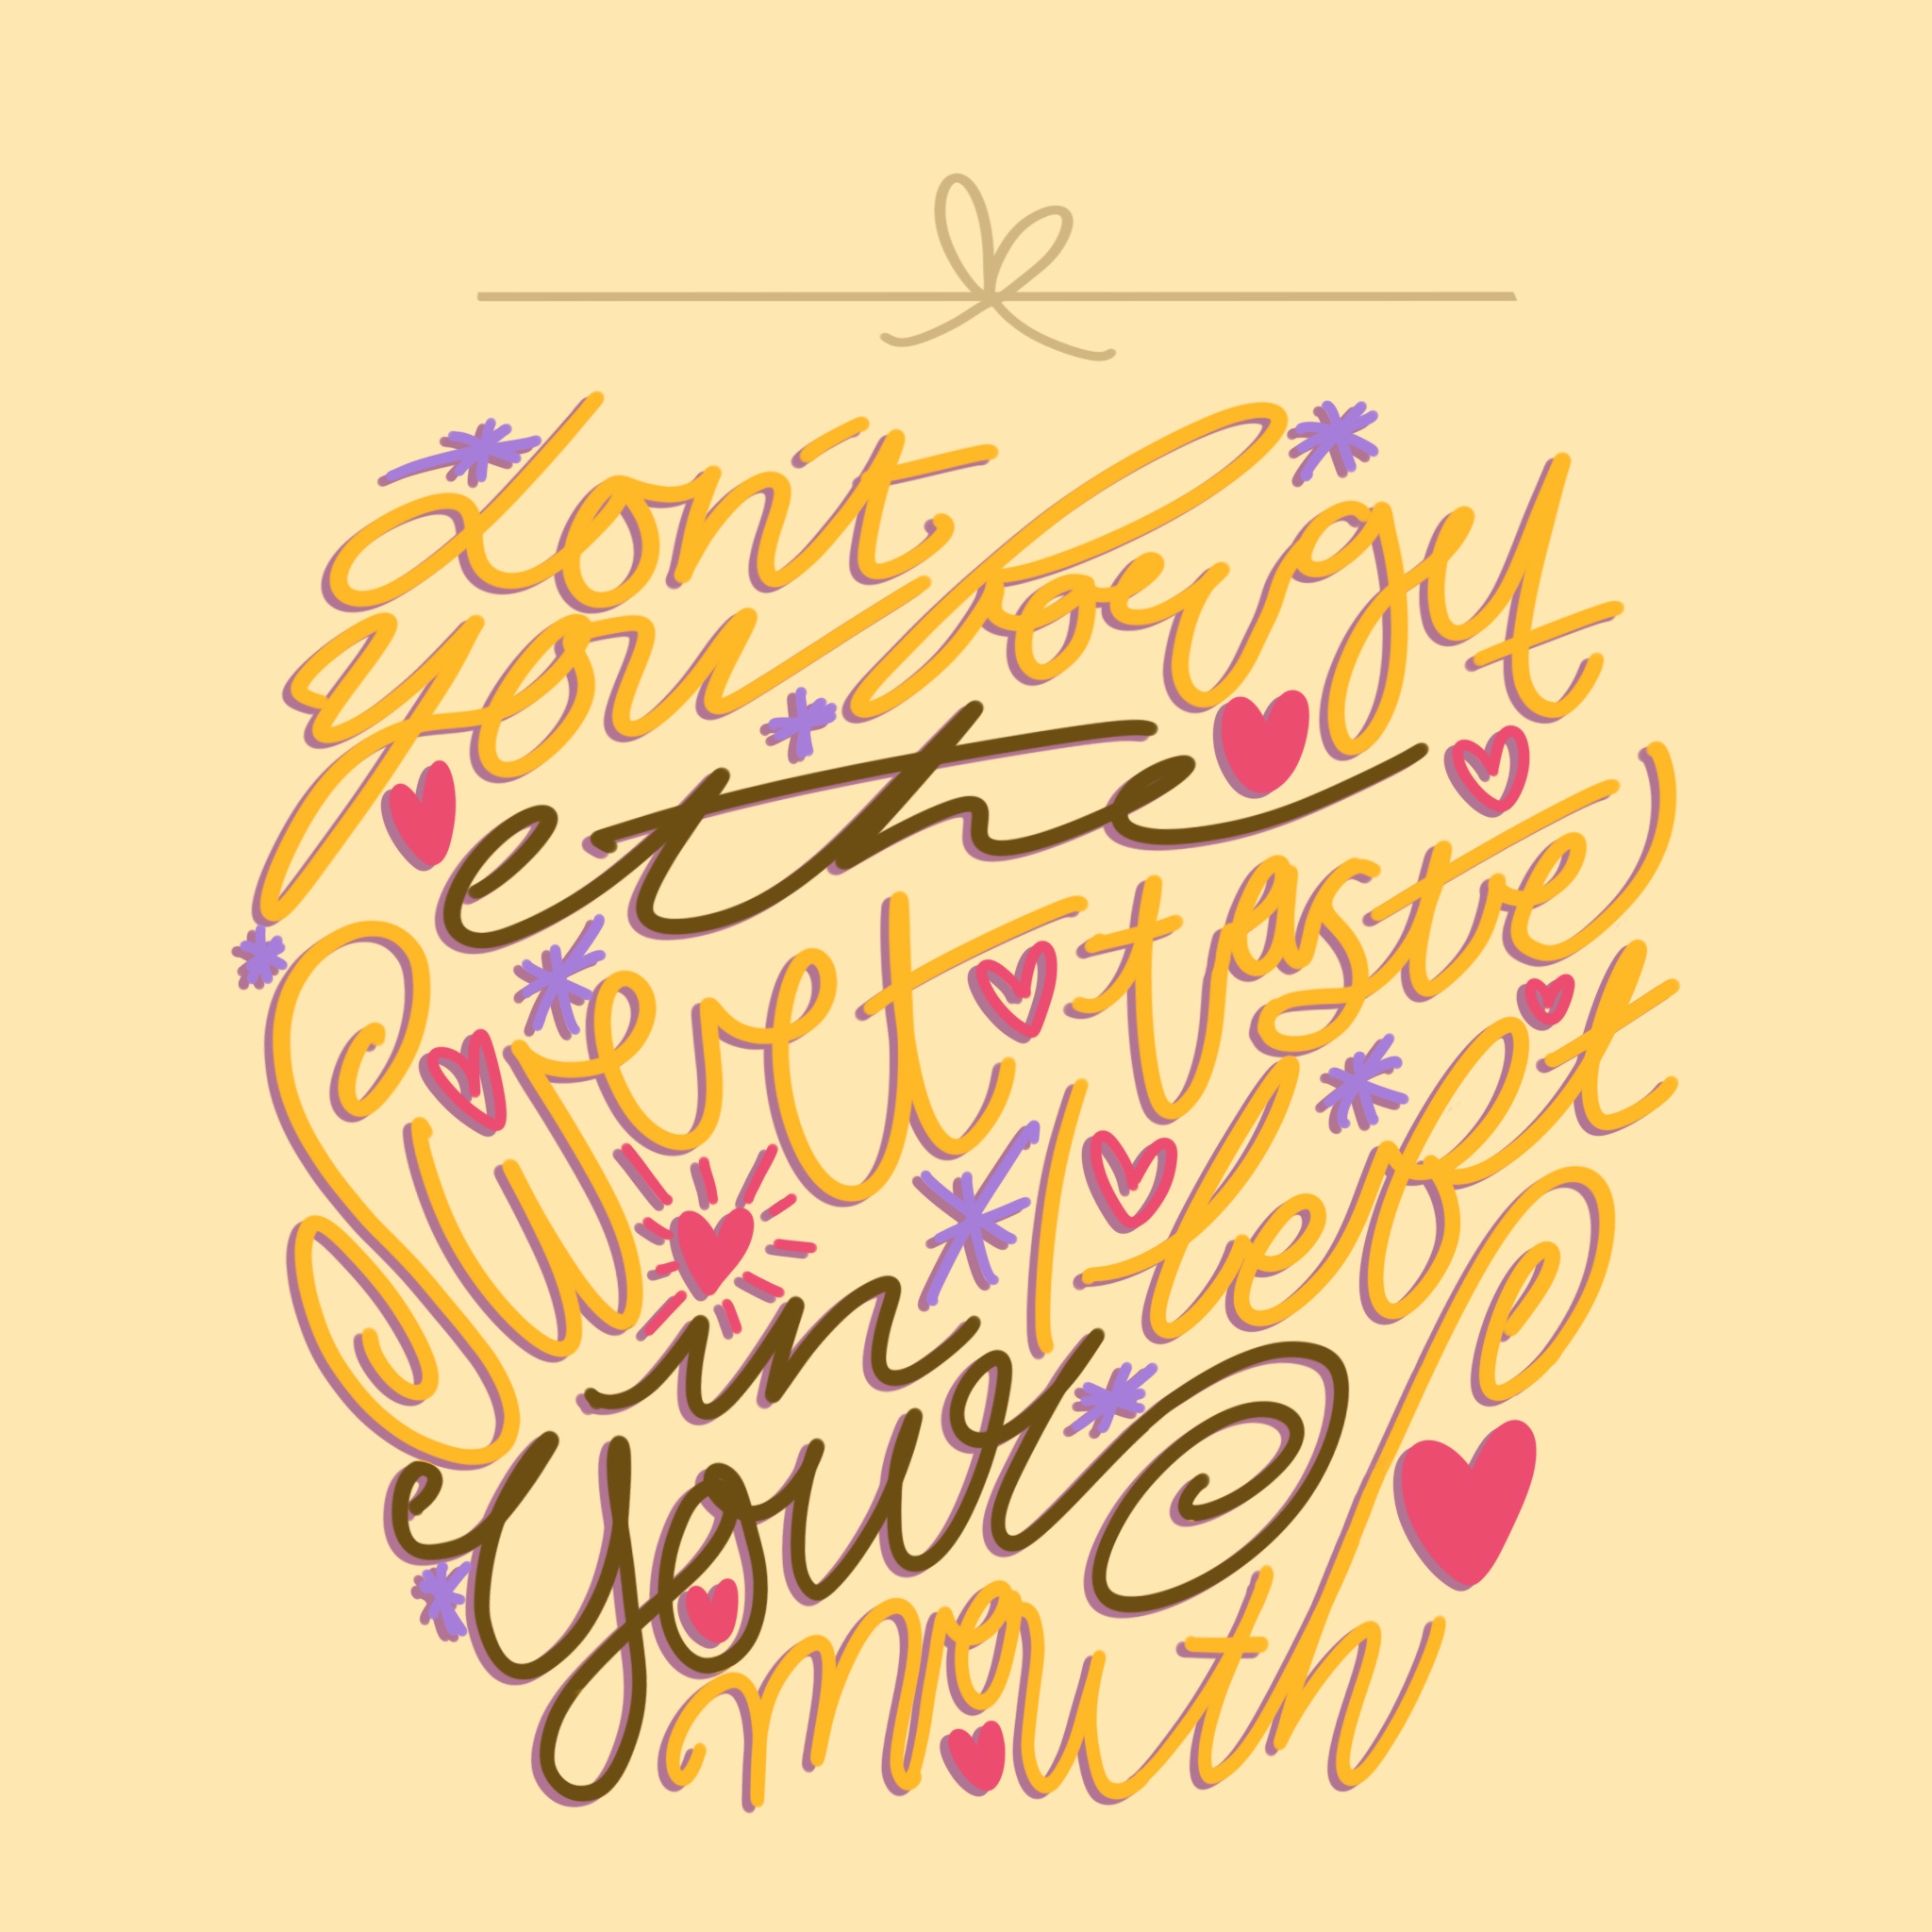 dont
you forget
the
sweet taste
I kept
in
your
mouth